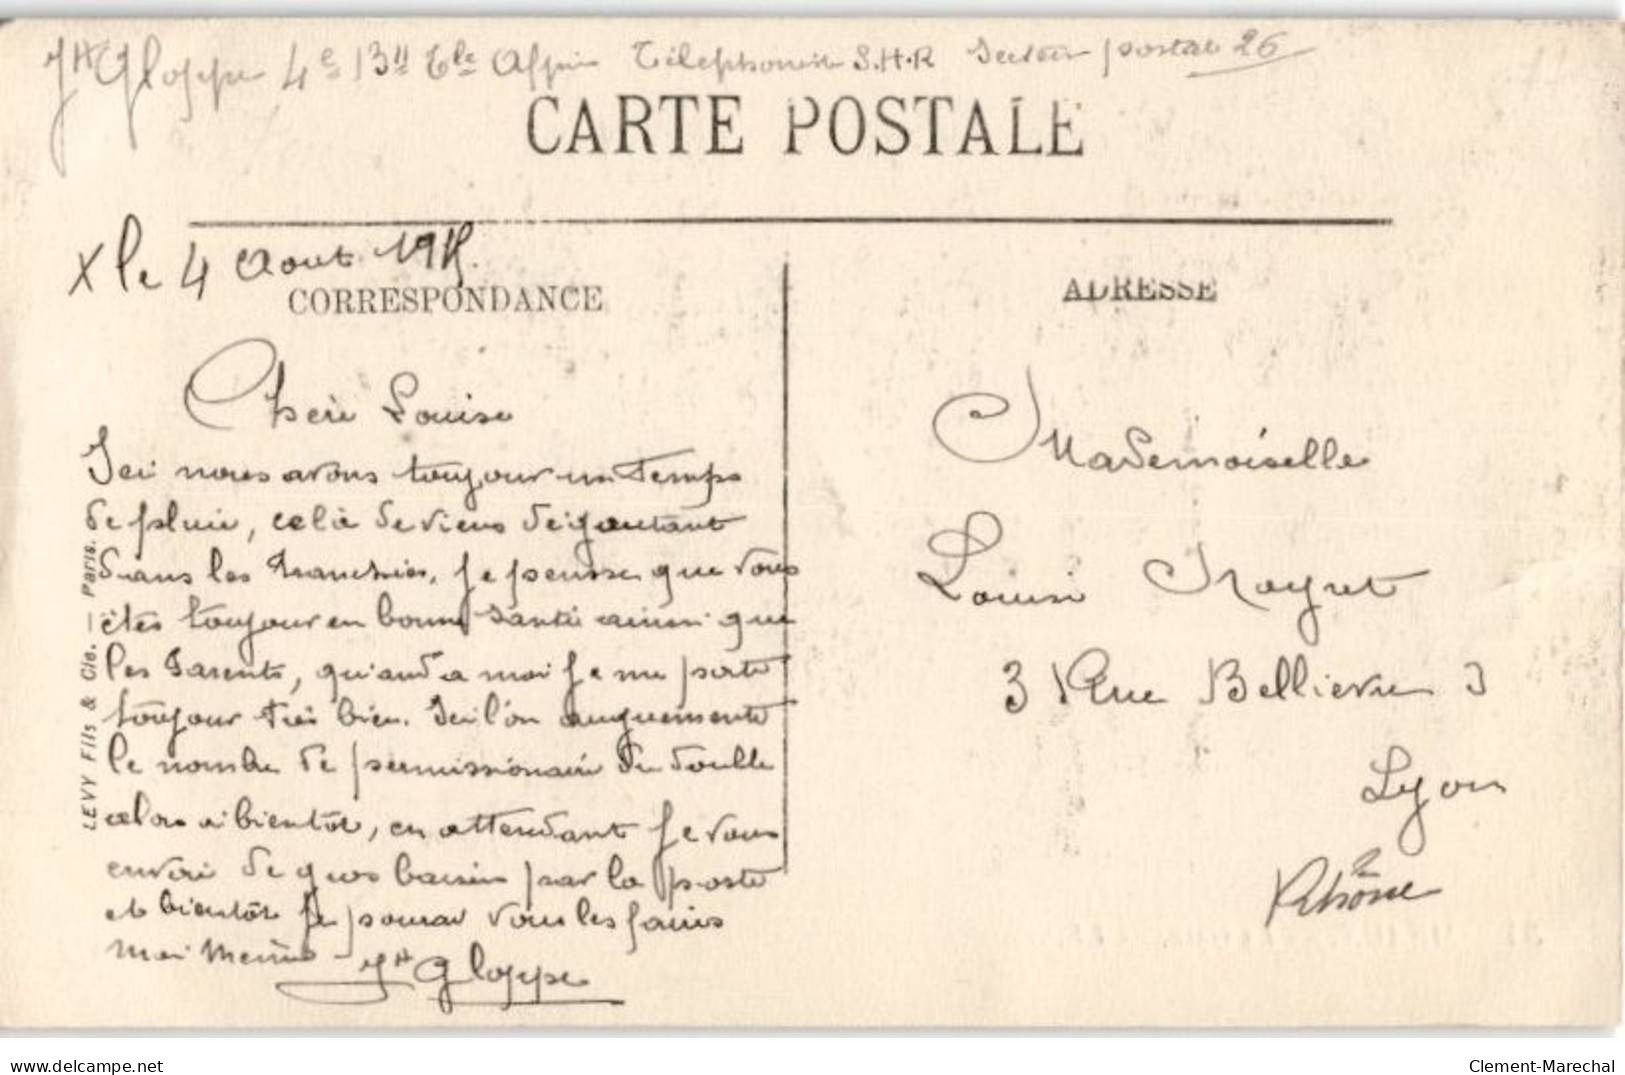 Jh Gloppe 4e 13e Ble Alpin Téléphoniste S.H.R Secteur postal 26
CARTE POSTALE
X le 4 Aout 1915.
CORRESPONDANCE
ADRESSE
Chere Louise
Ici nous avons toujour un Temps
de pluie, celà deviens dégoutant
dans les Tranchées, je pensse que vous
êtes toujour en bonne santée ainssi que
les Parents, quand a moi je me porte
toujour très bien. Ici l'on augmente
le nombre de permissionaire du double
alors a bientôt, en attendant je vous
envoi de gros baisers par la poste
et bientôt je pourrai vous les faires
moi même Jh Gloppe
LEVY Fils & Cie. — Paris.
Mademoiselle
Louise Noyret
3 Rue Bellievre 3
Lyon
Rhône
delcampe.net
Clement-Marechal